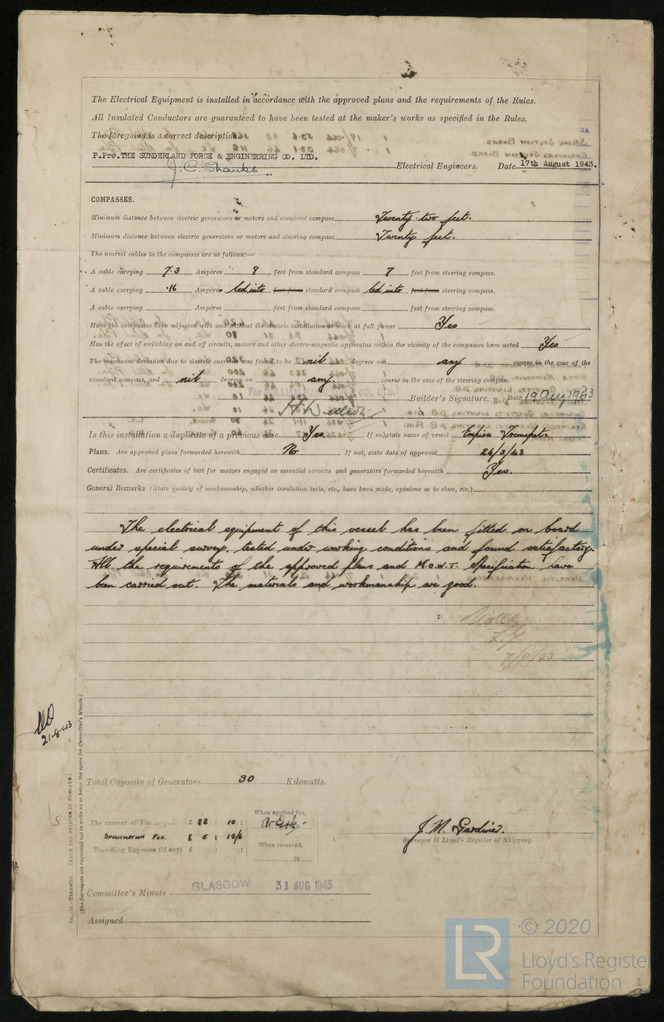 The Electrical Equipment is installed in accordance with the approved plans and the requirements of the Rules.
All Insulated Conductors are guaranteed to have been tested at the maker's works as specified in the Rules.
The foregoing is a correct description.
P.Pro. THE SUNDERLAND FORGE & ENGINEERING CO. LTD.
J. C. Shanks Electrical Engineers. Date 17th August 1943.
COMPASSES.
Minimum distance between electric generators or motors and standard compass Twenty two feet.
Minimum distance between electric generators or motors and steering compass Twenty feet.
The nearest cables to the compasses are as follows:—
A cable carrying 7.3 Ampères 9 feet from standard compass 7 feet from steering compass.
A cable carrying .16 Ampères led into feet from standard compass led into feet from steering compass.
A cable carrying Ampères feet from standard compass feet from steering compass.
Have the compasses been adjusted with and without the electric installation at work at full power Yes
Has the effect of switching on and off circuits, motors and other electro-magnetic apparatus within the vicinity of the compasses been noted Yes
The maximum deviation due to electric currents was found to be nil degrees on any course in the case of the
standard compass, and nil degrees on any course in the case of the steering compass.
Builder's Signature. Date 19 Aug 1943
Is this installation a duplicate of a previous case Yes If so, state name of vessel Empire Trumpeter
Plans. Are approved plans forwarded herewith No If not, state date of approval 26/3/43
Certificates. Are certificates of test for motors engaged on essential services and generators forwarded herewith Yes.
General Remarks (State quality of workmanship, whether insulation tests, etc., have been made, opinions as to class, etc.)
The electrical equipment of this vessel has been fitted on board
under special survey, tested under working conditions and found satisfactory.
All the requirements of the approved plans and M.O.W.T. specification have
been carried out. The materials and workmanship are good.
Noted
21-8-43
Total Capacity of Generators 30 Kilowatts.
The amount of Fee £ 22 : 10 : When applied for,
Specification Fee. £ 5 : 12/6
Travelling Expenses (if any) £ : : When received,
19
J. N. Gardiner.
Surveyor to Lloyd's Register of Shipping.
Committee's Minute GLASGOW 31 AUG 1943
Assigned
(The Surveyors are requested not to write on or below the space for Committee's Minute.)
LR
© 2020
Lloyd's Register
Foundation